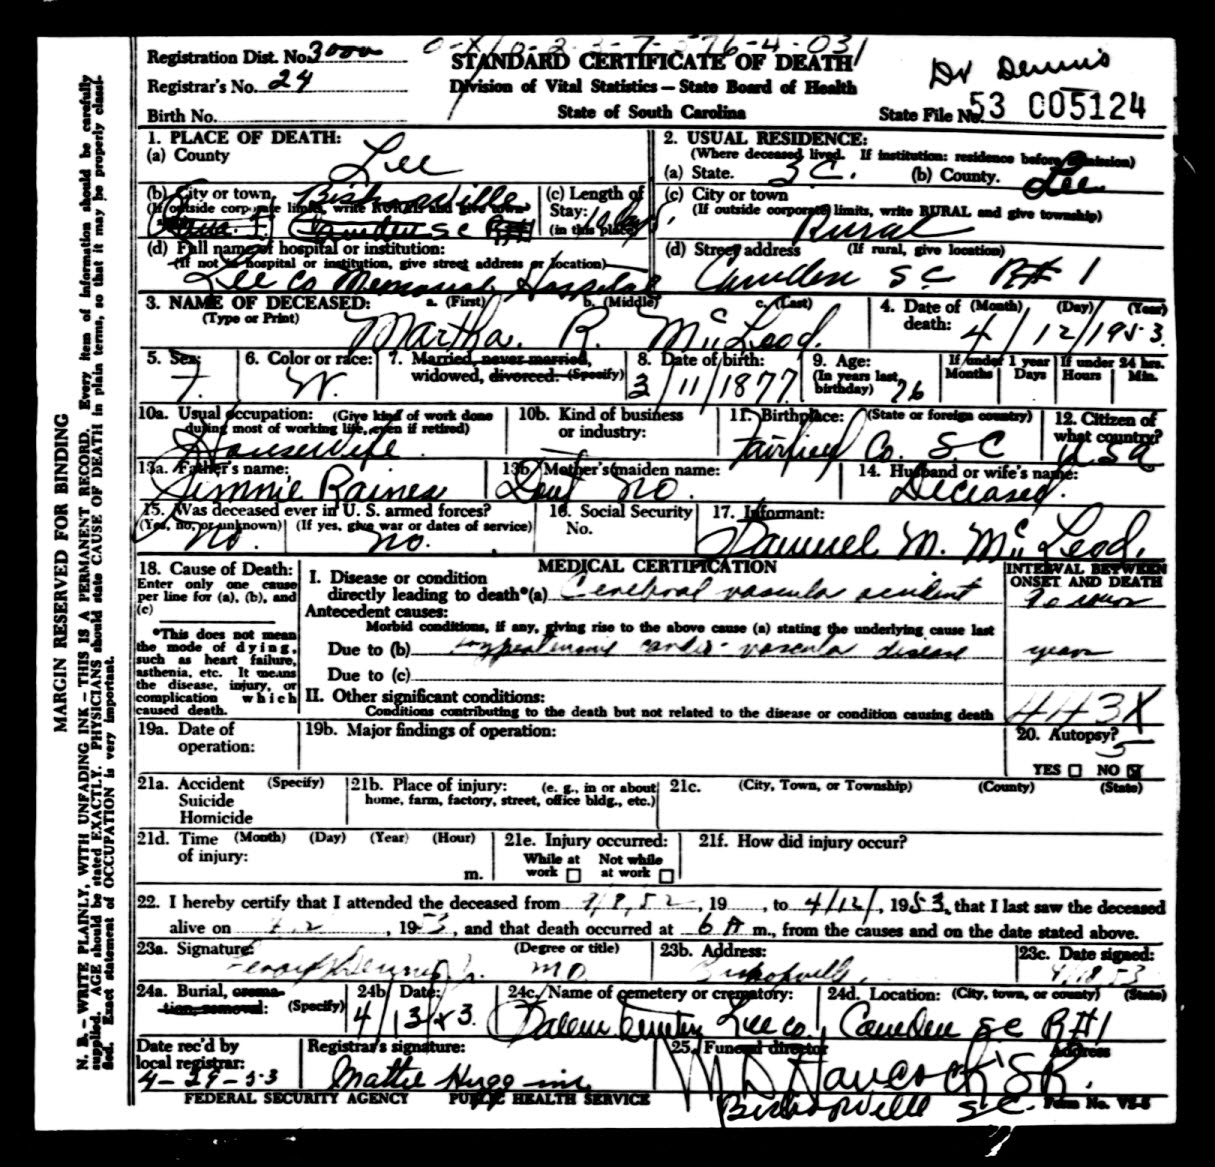 Registration Dist. No. 3000
STANDARD CERTIFICATE OF DEATH
Dr Dennis
Registrar's No. 24
Division of Vital Statistics — State Board of Health
Birth No.
State of South Carolina
State File No. 53 005124
1. PLACE OF DEATH:
(a) County Lee
2. USUAL RESIDENCE:
(Where deceased lived. If institution: residence before admission)
(a) State. S.C. (b) County. Lee
(b) City or town Bishopville
(If outside corporate limits, write RURAL and give town
Camden S C R#1
(c) Length of
Stay:
(in this place)
(c) City or town
(If outside corporate limits, write RURAL and give township)
Rural
(d) Full name of hospital or institution:
(If not in hospital or institution, give street address or location)
Lee Co Memorial Hospital
(d) Street address (If rural, give location)
Camden S C R#1
3. NAME OF DECEASED: a. (First) b. (Middle) c. (Last)
(Type or Print) Martha R. McLeod
4. Date of (Month) (Day) (Year)
death: 4/12/1953
5. Sex: F.
6. Color or race: W.
7. Married, never married,
widowed, divorced: (Specify)
8. Date of birth:
3/11/1877
9. Age:
(In years last
birthday) 76
If under 1 year
Months Days
If under 24 hrs.
Hours Min.
10a. Usual occupation: (Give kind of work done
during most of working life, even if retired)
Housewife
10b. Kind of business
or industry:
11. Birthplace: (State or foreign country)
Fairfield Co. S C
12. Citizen of
what country?
USA
13a. Father's name:
Jimmie Raines
13b. Mother's maiden name:
Dont no.
14. Husband or wife's name:
Deceased.
15. Was deceased ever in U. S. armed forces?
(Yes, no, or unknown) (If yes, give war or dates of service)
no. no.
16. Social Security
No.
17. Informant:
Samuel M. McLeod.
18. Cause of Death:
Enter only one cause
per line for (a), (b), and
(c)
*This does not mean
the mode of dying,
such as heart failure,
asthenia, etc. It means
the disease, injury, or
complication which
caused death.
MEDICAL CERTIFICATION
INTERVAL BETWEEN
ONSET AND DEATH
I. Disease or condition
directly leading to death*(a) Cerebral vascular accident
Antecedent causes:
Morbid conditions, if any, giving rise to the above cause (a) stating the underlying cause last
Due to (b) Hypertensive cardio-vascular disease years
Due to (c)
II. Other significant conditions:
Conditions contributing to the death but not related to the disease or condition causing death
443X
19a. Date of
operation:
19b. Major findings of operation:
20. Autopsy?
5
YES NO
21a. Accident (Specify)
Suicide
Homicide
21b. Place of injury: (e. g., in or about
home, farm, factory, street, office bldg., etc.)
21c. (City, Town, or Township) (County) (State)
21d. Time (Month) (Day) (Year) (Hour)
of injury: m.
21e. Injury occurred:
While at Not while
work at work
21f. How did injury occur?
22. I hereby certify that I attended the deceased from , 19 , to 4/12/, 1953, that I last saw the deceased
alive on , 1953, and that death occurred at 6 A m., from the causes and on the date stated above.
23a. Signature: (Degree or title) M D
23b. Address:
Bishopville,
23c. Date signed:
24a. Burial, crema-
tion, removal: (Specify)
24b. Date:
4/13/53.
24c. Name of cemetery or crematory:
Salem Cemetery Lee Co.
24d. Location: (City, town, or county) (State)
Camden S C R#1
Date rec'd by
local registrar:
4-29-53
Registrar's signature:
Mattie Huggins
25. Funeral director Address
M D Hancock SR.
Bishopville S.C.
FEDERAL SECURITY AGENCY PUBLIC HEALTH SERVICE
Form No. VS-5
MARGIN RESERVED FOR BINDING
N. B. – WRITE PLAINLY, WITH UNFADING INK – THIS IS A PERMANENT RECORD. Every item of information should be carefully
supplied. AGE should be stated EXACTLY. PHYSICIANS should state CAUSE OF DEATH in plain terms, so that it may be properly classi-
fied. Exact statement of OCCUPATION is very important.